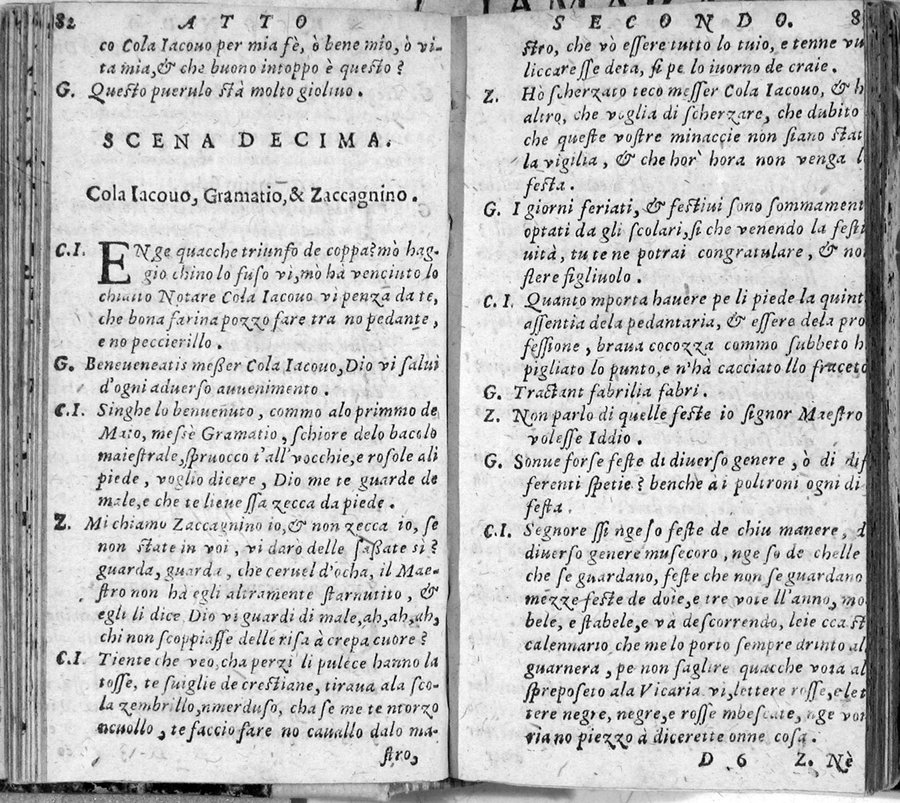 82 ATTO
co Cola Iacouo per mia fè, ò bene mio, ò vi-
ta mia, & che buono intoppo è questo?
G. Questo puerulo stà molto gioliuo.
SCENA DECIMA.
Cola Iacouo, Gramatio, & Zaccagnino.
C.I. ENge quacche triunfo de coppa? mò hag-
gio chino lo fuso vi, mò hà venciuto lo
chiaito Notare Cola Iacouo vi penza da te,
che bona farina pozzo fare tra no pedante,
e no peccierillo.
G. Beneueneatis meßer Cola Iacouo, Dio vi salui
d'ogni aduerso auuenimento.
C.I. Singhe lo benuenuto, commo alo primmo de
Maio, messè Gramatio, schiore delo bacolo
maiestrale, spruocco t'all'vocchie, e rosole ali
piede, voglio dicere, Dio me te guarde de
male, e che te lieue ssa zecca da piede.
Z. Mi chiamo Zaccagnino io, & non zecca io, se
non state in voi, vi darò delle saßate si?
guarda, guarda, che ceruel d'ocha, il Mae-
stro non hà egli altramente starnutito, &
egli li dice Dio vi guardi di male, ah, ah, ah,
chi non scoppiasse delle risa à crepa cuore?
C.I. Tiente che veo, cha perzi li pulece hanno la
tosse, te suiglie de crestiane, tiraua ala sco-
la zembrillo, nmerduso, cha se me te ntorzo
ncuollo, te faccio fare no cauallo dalo ma-
stro,
SECONDO. 8
stro, che vò essere tutto lo tuio, e tenne vu
liccaresse deta, si pe lo iuorno de craie.
Z. Hò scherzato teco messer Cola Iacouo, & h
altro, che voglia di scherzare, che dubito
che queste vostre minaccie non siano stat
la vigilia, & che hor' hora non venga l
festa.
G. I giorni feriati, & festiui sono sommament
optati da gli scolari, si che venendo la festi
uità, tu te ne potrai congratulare, & non
flere figliuolo.
C.I. Quanto mporta hauere pe li piede la quint
assentia dela pedantaria, & essere dela pro
fessione, braua cocozza commo subbeto h
pigliato lo punto, e n'hà cacciato llo fraceto
G. Tractant fabrilia fabri.
Z. Non parlo di quelle feste io signor Maestro
volesse Iddio.
G. Sonue forse feste di diuerso genere, ò di dif
ferenti spetie? benche ài poltroni ogni di
festa.
C.I. Segnore ssi nge so feste de chiu manere, d
diuerso genere musecoro, nge so de chelle
che se guardano, feste che non se guardano
mezze feste de doie, e tre vote ll'anno, mo
bele, e stabele, e và descorrendo, leie cca st
calennario, che me lo porto sempre drinto al
guarnera, pe non saglire quacche vota al
spreposeto ala Vicaria. vi, lettere rosse, e let
tere negre, negre, e rosse mbescate, nge vor
riano piezzo à dicerette onne cosa.
D 6 Z. Nè